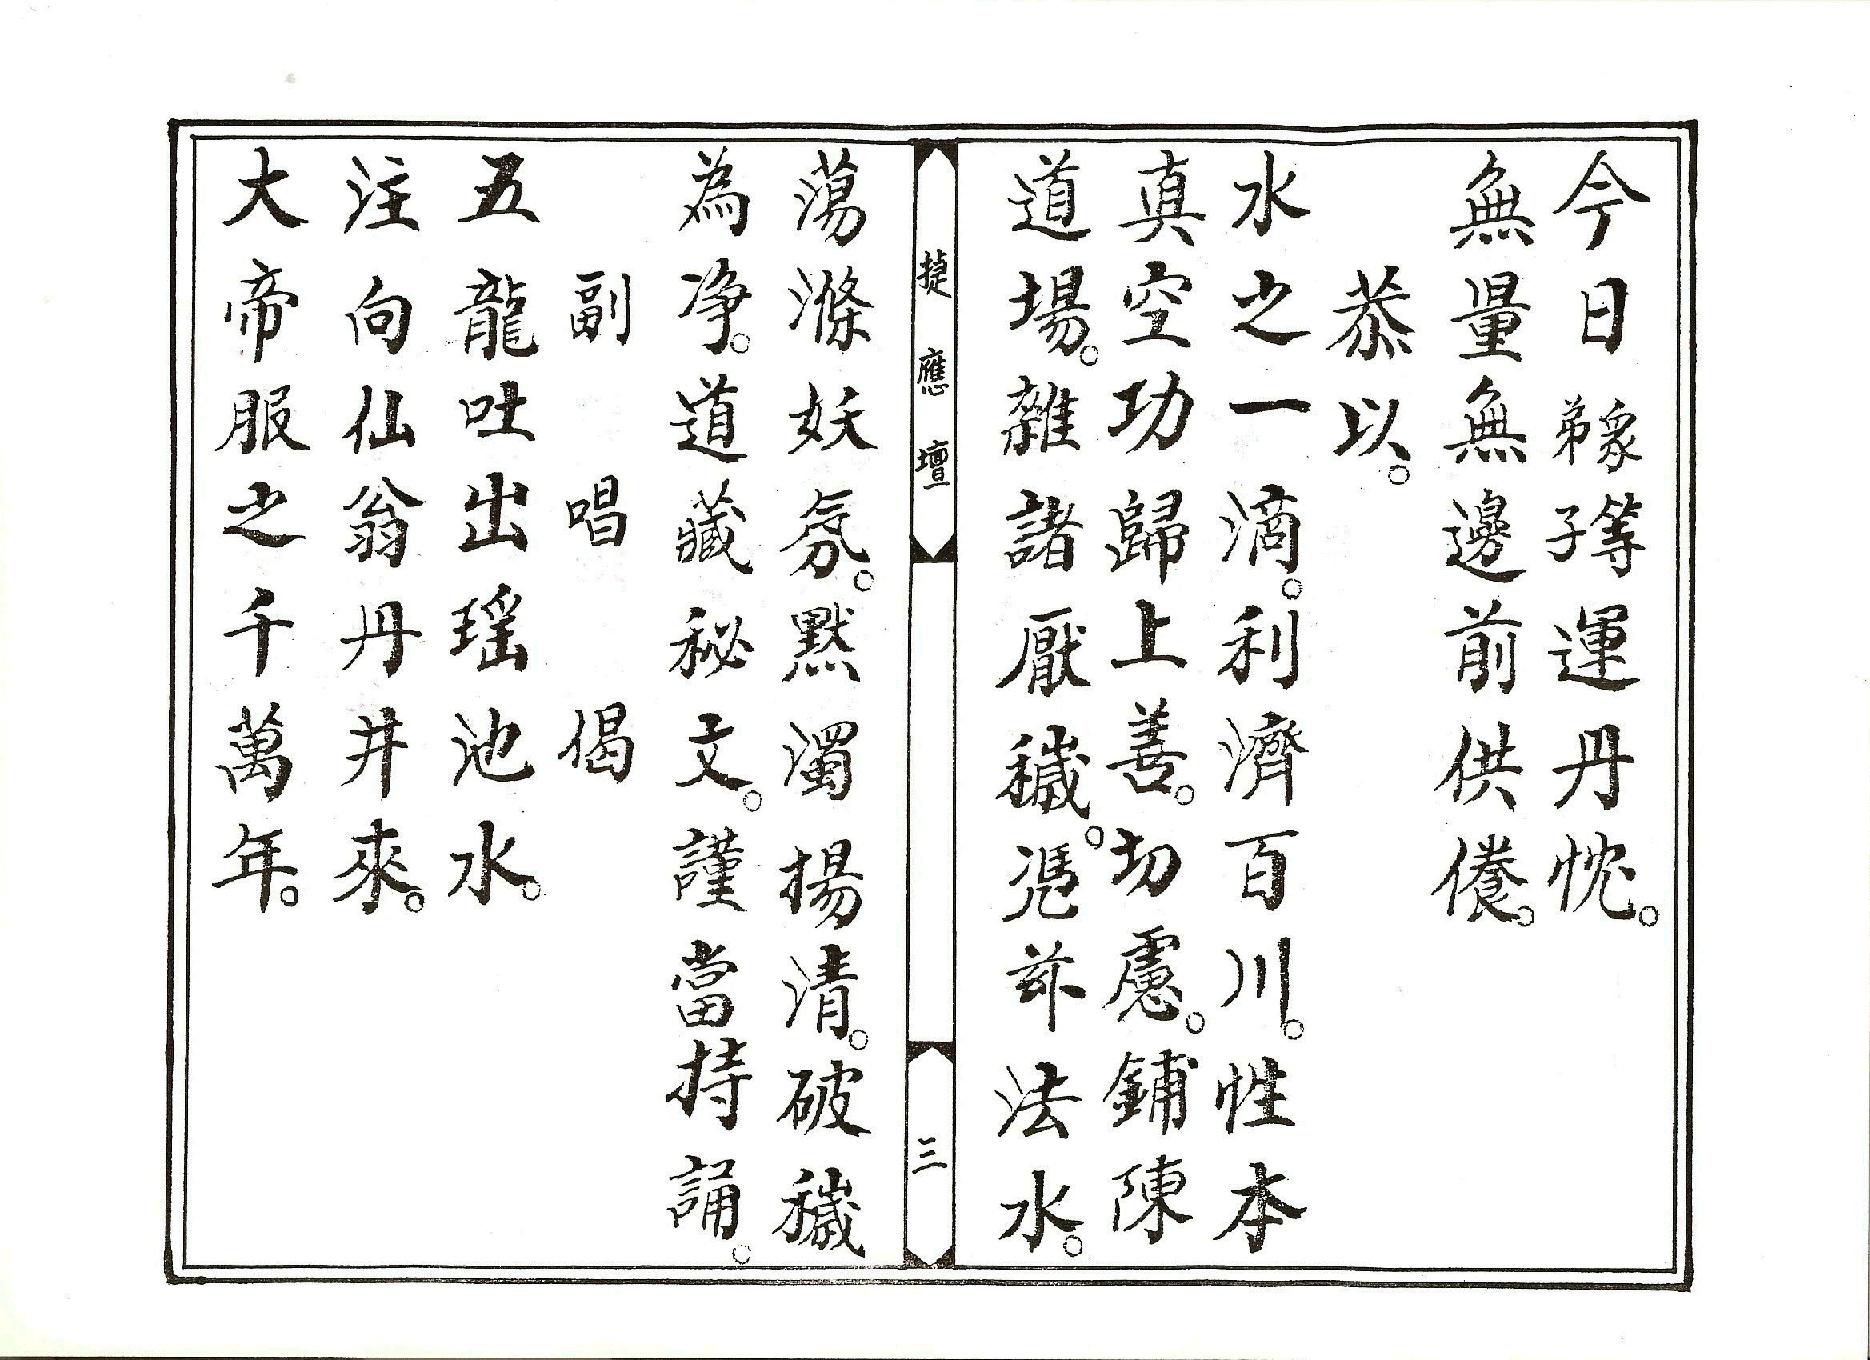 今日眾等弟子運丹忱。
無量無邊前供養。
恭以。
水之一滴。利濟百川。性本
真空功歸上善。切慮。鋪陳
道場。雜諸厭穢。凴茲法水。
捷應壇
三
蕩滌妖氛。默濁揚清。破穢
為净。道藏秘文。謹當持誦。
副唱偈
五龍吐出瑶池水。
注向仙翁丹井來。
大帝服之千萬年。